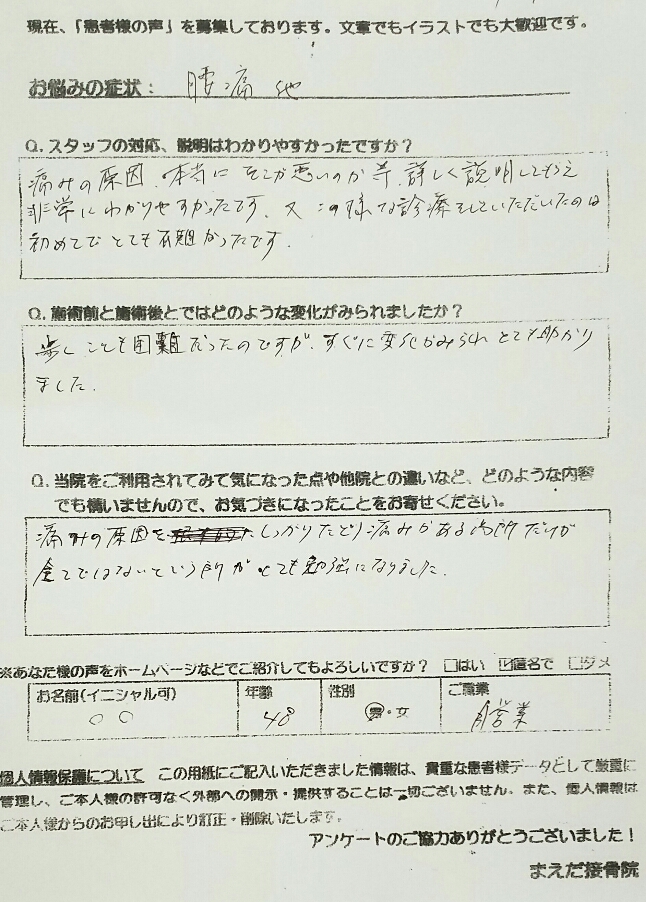 現在、「患者様の声」を募集しております。文章でもイラストでも大歓迎です。
お悩みの症状： 腰痛 他
Q. スタッフの対応、説明はわかりやすかったですか？
痛みの原因、本当にどこが悪いのか等、詳しく説明してもらえ
非常にわかりやすかったです。又この様な診療をしていただいたのは
初めてでとても有難かったです。
Q. 施術前と施術後とではどのような変化がみられましたか？
歩くことも困難だったのですが、すぐに変化がみられとても助かり
ました。
Q. 当院をご利用されてみて気になった点や他院との違いなど、どのような内容
でも構いませんので、お気づきになったことをお寄せください。
痛みの原因を しっかりたどり痛みがある場所だけが
全てではないという所がとても勉強になりました。
※あなた様の声をホームページなどでご紹介してもよろしいですか？ □はい ☑匿名で □ダメ
お名前(イニシャル可) 年齢 性別 ご職業
○○ 48 男・女 自営業
個人情報保護について この用紙にご記入いただきました情報は、貴重な患者様データとして厳重に
管理し、ご本人様の許可なく外部への開示・提供することは一切ございません。また、個人情報は
ご本人様からのお申し出により訂正・削除いたします。
アンケートのご協力ありがとうございました！
まえだ接骨院